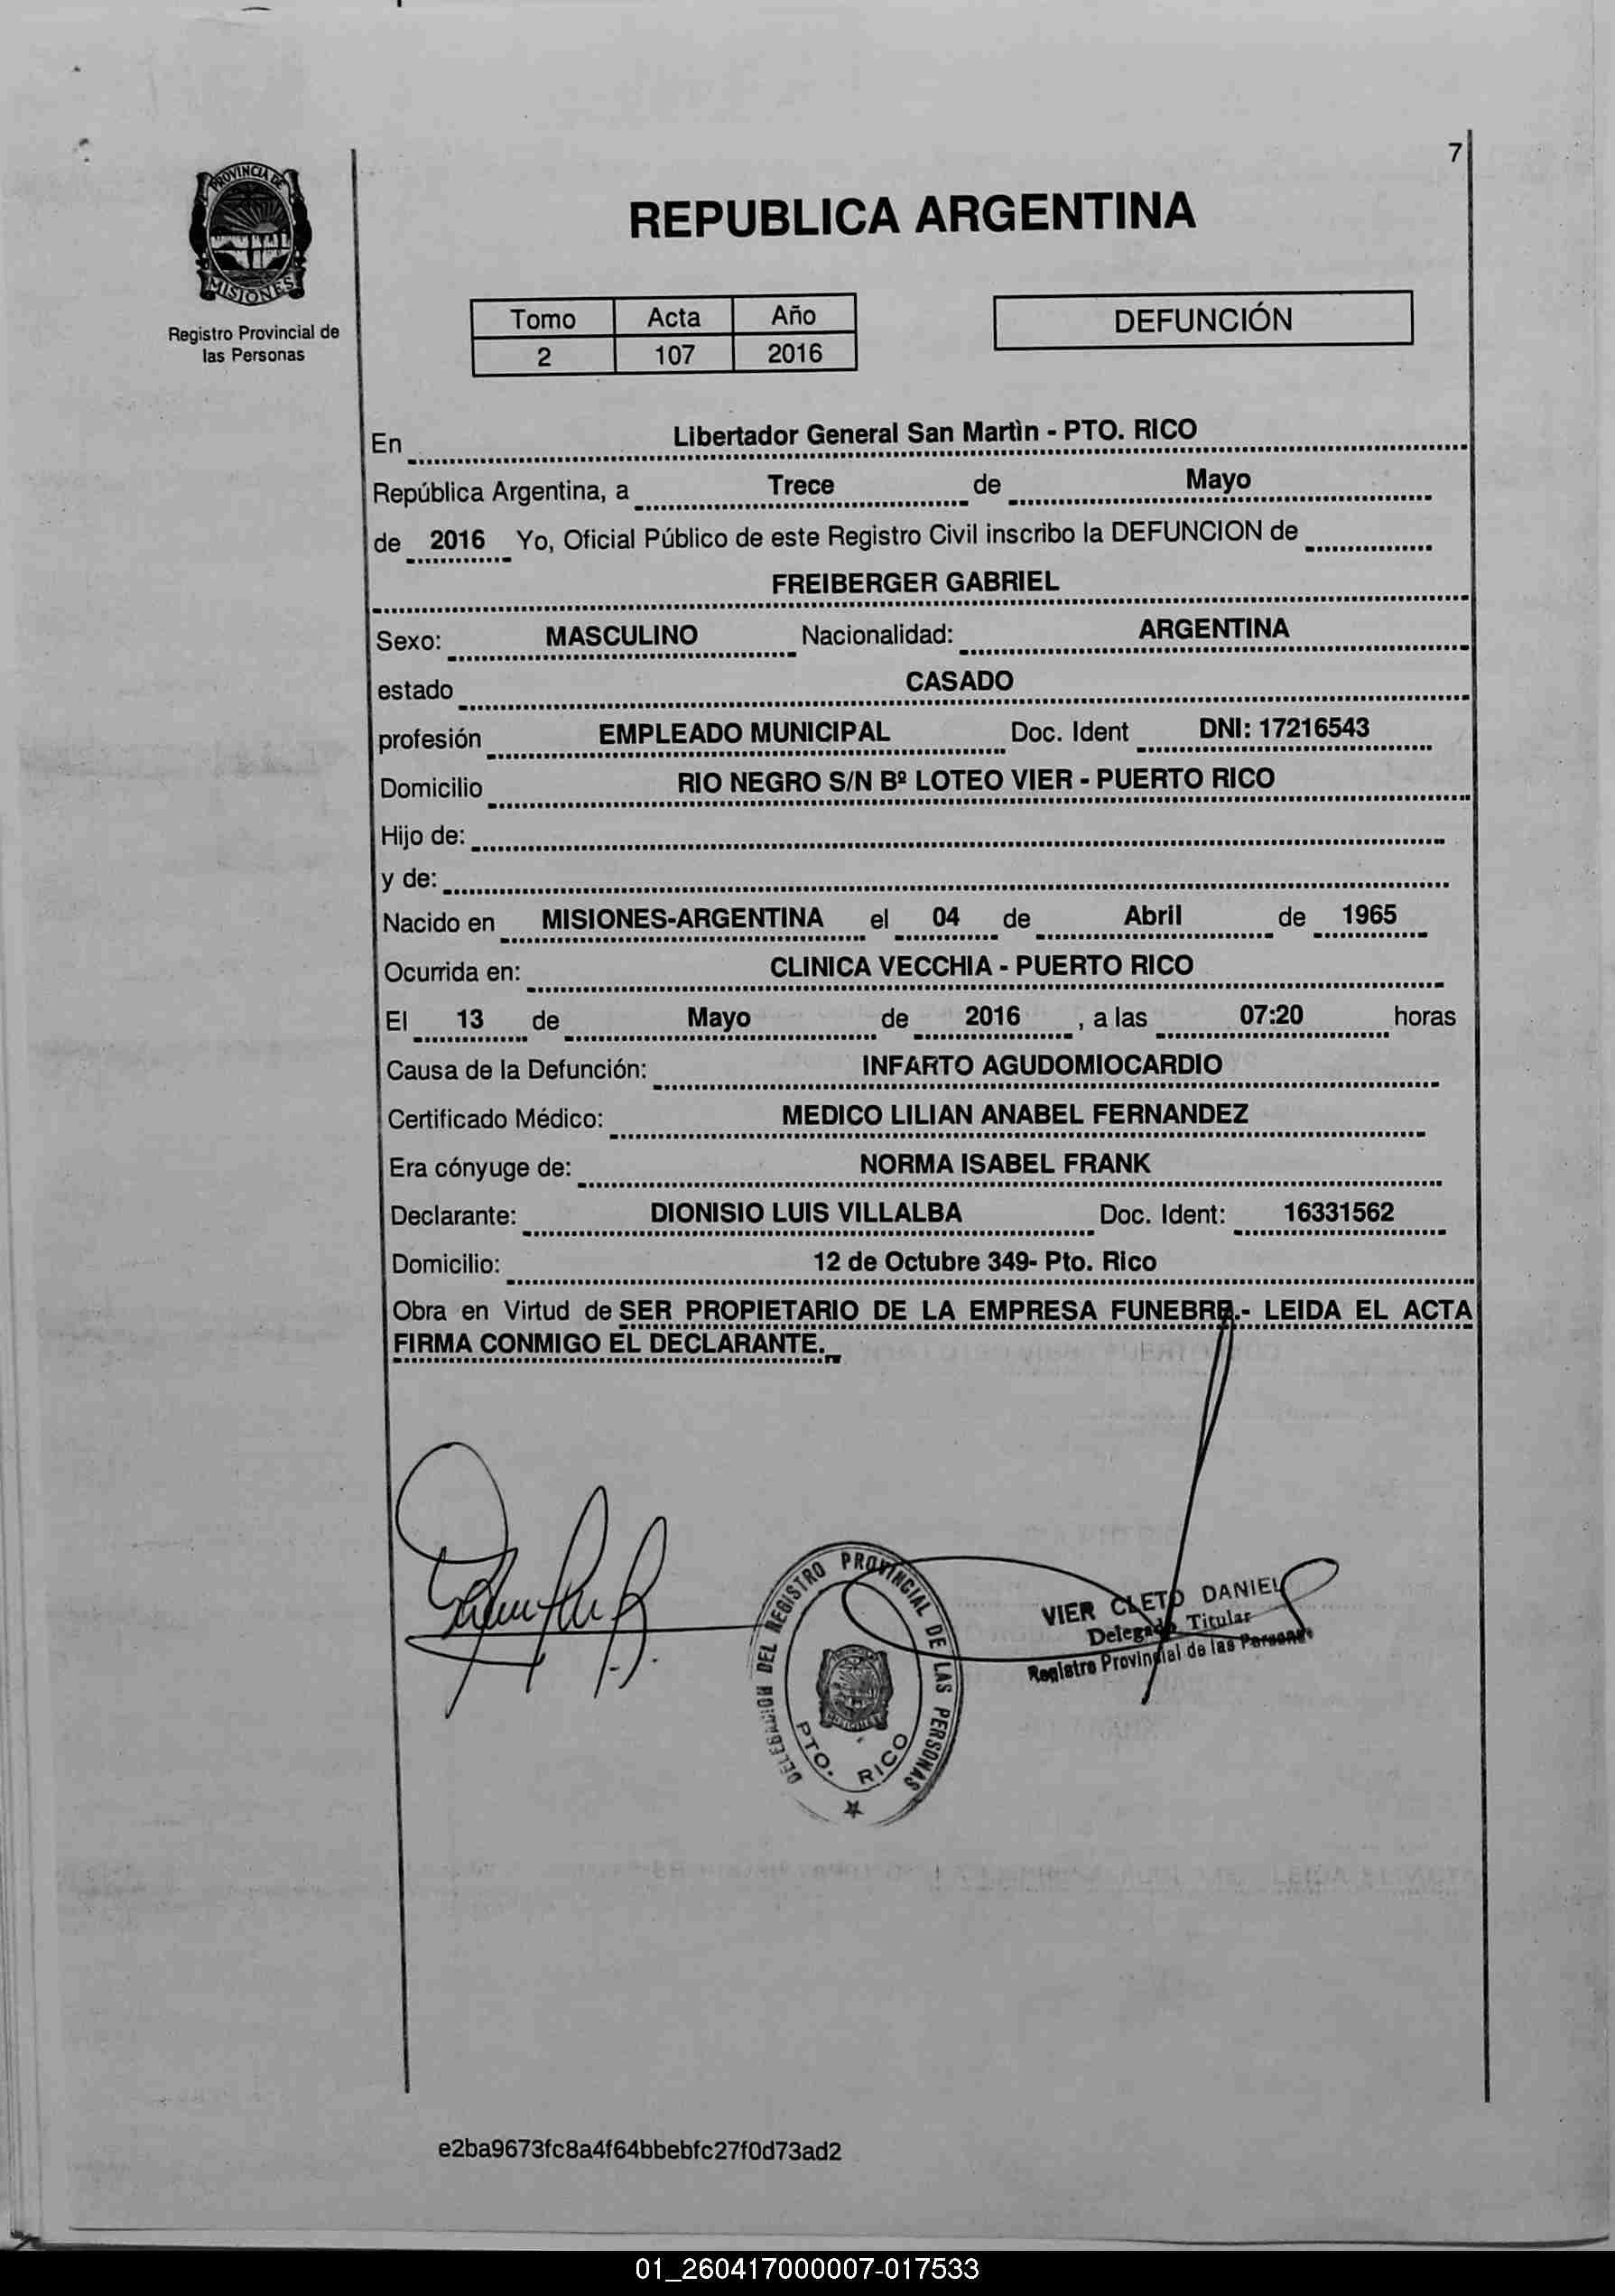 7
PROVINCIA DE
MISIONES
Registro Provincial de
las Personas
REPUBLICA ARGENTINA
Tomo Acta Año
2 107 2016
DEFUNCIÓN
En Libertador General San Martìn - PTO. RICO
República Argentina, a Trece de Mayo
de 2016 Yo, Oficial Público de este Registro Civil inscribo la DEFUNCION de
FREIBERGER GABRIEL
Sexo: MASCULINO Nacionalidad: ARGENTINA
estado CASADO
profesión EMPLEADO MUNICIPAL Doc. Ident DNI: 17216543
Domicilio RIO NEGRO S/N Bº LOTEO VIER - PUERTO RICO
Hijo de:
y de:
Nacido en MISIONES-ARGENTINA el 04 de Abril de 1965
Ocurrida en: CLINICA VECCHIA - PUERTO RICO
El 13 de Mayo de 2016 , a las 07:20 horas
Causa de la Defunción: INFARTO AGUDOMIOCARDIO
Certificado Médico: MEDICO LILIAN ANABEL FERNANDEZ
Era cónyuge de: NORMA ISABEL FRANK
Declarante: DIONISIO LUIS VILLALBA Doc. Ident: 16331562
Domicilio: 12 de Octubre 349- Pto. Rico
Obra en Virtud de SER PROPIETARIO DE LA EMPRESA FUNEBRE.- LEIDA EL ACTA
FIRMA CONMIGO EL DECLARANTE.
DELEGACION DEL REGISTRO PROVINCIAL DE LAS PERSONAS
PTO. RICO
VIER CLETO DANIEL
Delegado Titular
Registro Provincial de las Personas
e2ba9673fc8a4f64bbebfc27f0d73ad2
01_260417000007-017533